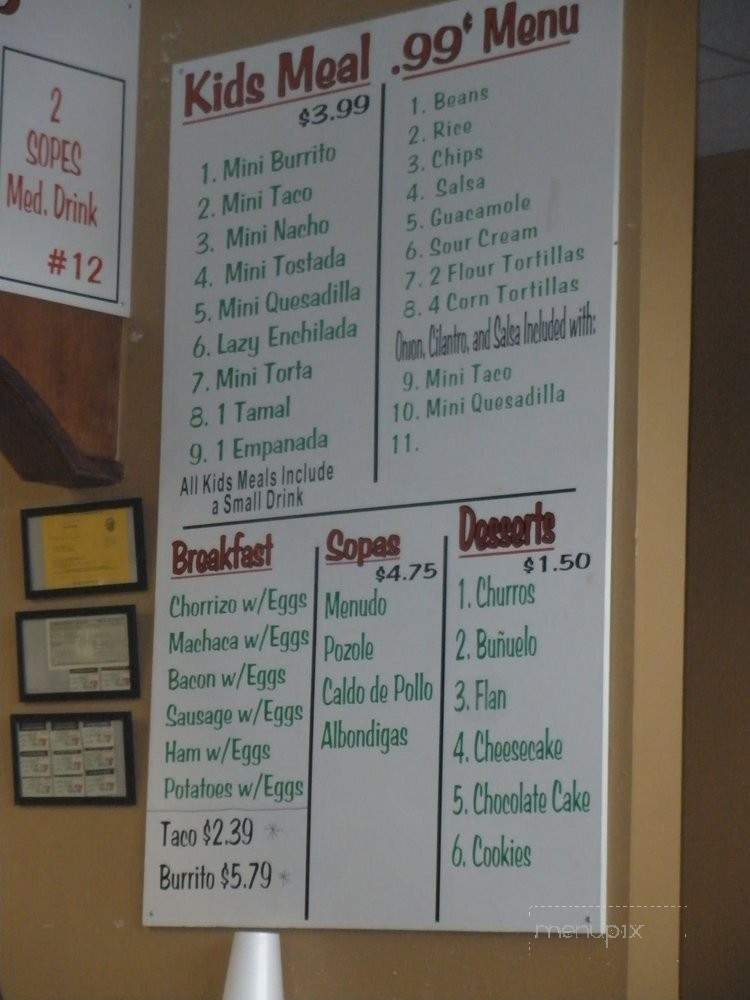 2
SOPES
Med. Drink
#12
Kids Meal
$3.99
1. Mini Burrito
2. Mini Taco
3. Mini Nacho
4. Mini Tostada
5. Mini Quesadilla
6. Lazy Enchilada
7. Mini Torta
8. 1 Tamal
9. 1 Empanada
All Kids Meals Include
a Small Drink
.99¢ Menu
1. Beans
2. Rice
3. Chips
4. Salsa
5. Guacamole
6. Sour Cream
7. 2 Flour Tortillas
8. 4 Corn Tortillas
Onion, Cilantro, and Salsa Included with:
9. Mini Taco
10. Mini Quesadilla
11.
Breakfast
Chorrizo w/Eggs
Machaca w/Eggs
Bacon w/Eggs
Sausage w/Eggs
Ham w/Eggs
Potatoes w/Eggs
Taco $2.39 *
Burrito $5.79 *
Sopas
$4.75
Menudo
Pozole
Caldo de Pollo
Albondigas
Desserts
$1.50
1. Churros
2. Buñuelo
3. Flan
4. Cheesecake
5. Chocolate Cake
6. Cookies
menupix